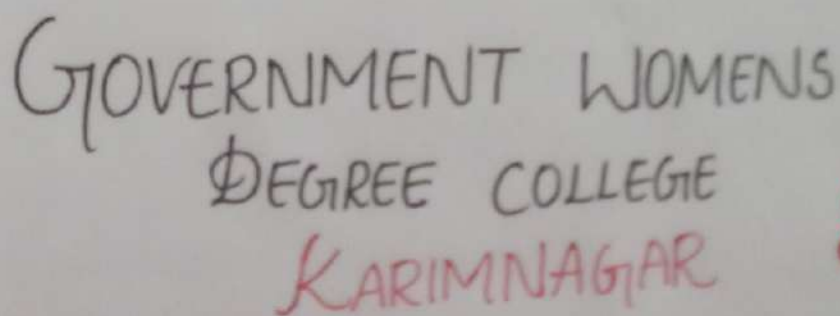 GOVERNMENT WOMENS
DEGREE COLLEGE
KARIMNAGAR